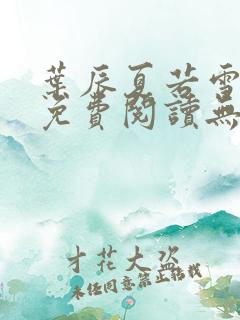 葉辰夏若雪
免費閱讀無
才花大盗
未经同意禁止搭找